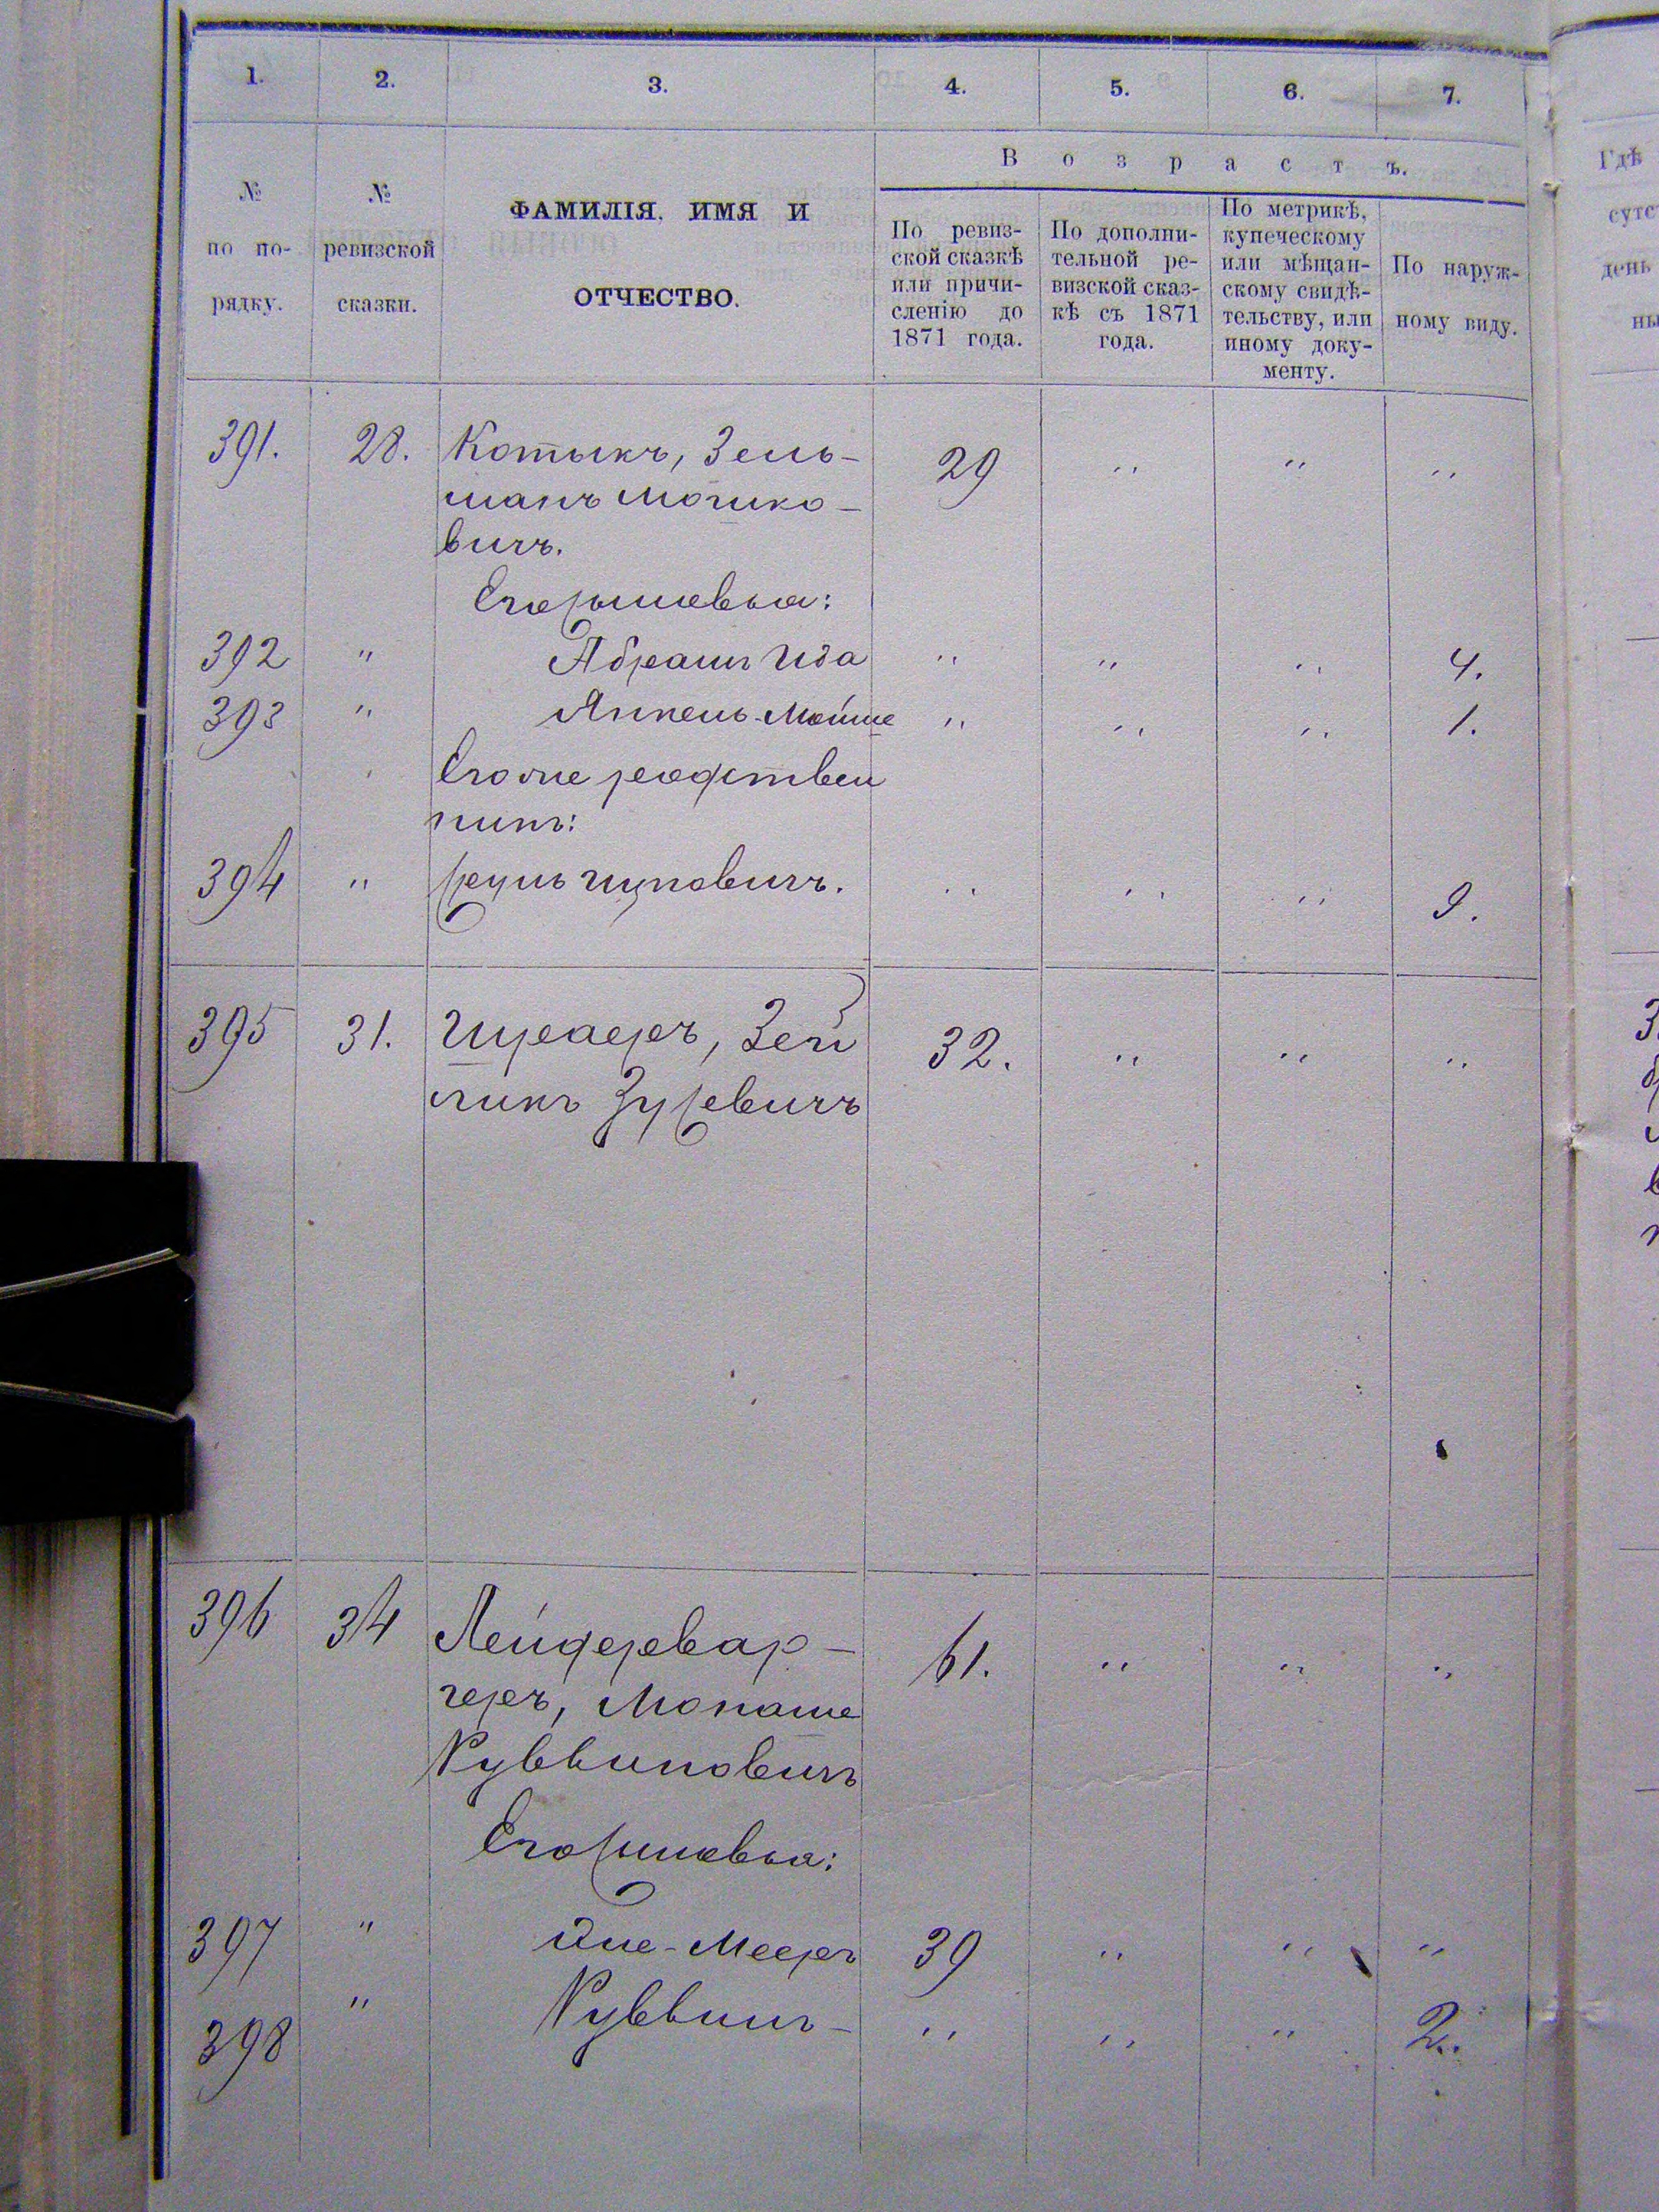 1. 2. 3. 4. 5. 6. 7.
№ по по-рядку.
№ ревизской сказки.
ФАМИЛІЯ. ИМЯ И
ОТЧЕСТВО.
Возрастъ.
По ревиз-
ской сказкѣ
или причи-
сленію до
1871 года.
По дополни-
тельной ре-
визской сказ-
кѣ съ 1871
года.
По метрикѣ,
купеческому
или мѣщан-
скому свидѣ-
тельству, или
иному доку-
менту.
По наруж-
ному виду.
Гдѣ
сутс
день
ны
391. 28. Котыкъ, Зель- 29 " " "
манъ Мошко-
вичъ.
Его сыновья:
392 " Абрамъ Ида " " " 4.
393 " Янкель-Мойше " " " 1.
Его же родствен
никъ:
394 " Сруль Ицковичъ. " " " 9.
395 31. Шраеръ, Зей 32. " " "
ликъ Зусевичъ
396 34 Лейдервар- 61. " " "
геръ, Монаше
Руввиновичъ
Его сыновья:
397 " Эле-Мееръ 39 " " "
398 " Руввинъ- " " " 2.